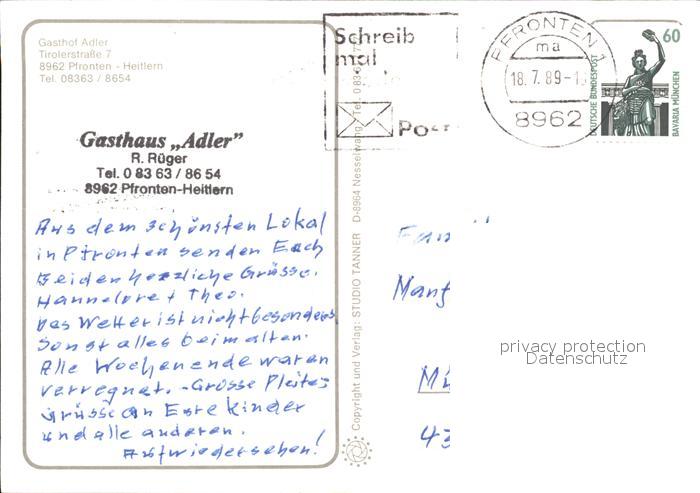 Gasthof Adler
Tirolerstraße 7
8962 Pfronten - Heitlern
Tel. 08363 / 8654
Schreib
mal
Post
PFRONTEN 1
ma
18.7.89-1
8962
60
DEUTSCHE BUNDESPOST
BAVARIA MÜNCHEN
Gasthaus „Adler"
R. Rüger
Tel. 0 83 63 / 86 54
8962 Pfronten-Heitlern
Aus dem schönsten Lokal
in Pfronten senden Euch
Beiden herzliche Grüsse.
Hannelore + Theo.
Das Wetter ist nicht besonders.
Sonst alles beim alten.
Alle Wochenende waren
verregnet. - Grosse Pleite -
Grüsse an Eure Kinder
und alle anderen.
Aufwiedersehen!
Copyright und Verlag: STUDIO TANNER D-8964 Nesselwang
Fam
Manf
Mü
43
privacy protection
Datenschutz